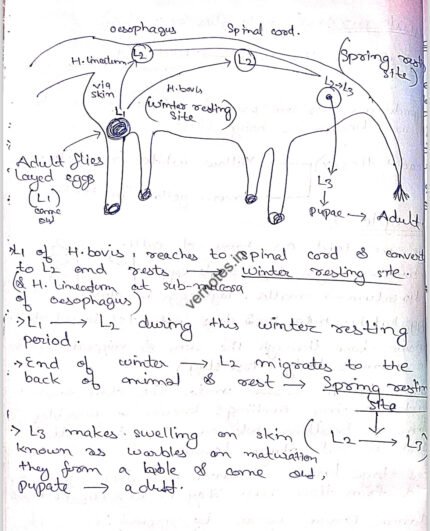 oesophagus Spinal cord.
L2
L2
H. lineatum
via skin
H. bovis
(Winter resting site)
L1
(Spring rest site)
L2→L3
Adult flies
layed eggs
(L1)
come
out
L3
pupae → Adult
→ L1 of H. bovis, reaches to spinal cord & convert
to L2 and rests → Winter resting site.
(& H. lineatum at sub-mucosa
of oesophagus)
→ L1 → L2 during this winter resting
period.
→ End of winter → L2 migrates to the
back of animal & rest → Spring restin
site
→ L3 makes swelling on skin (L2 → L3)
known as warbles on maturation
they form a hole & come out,
pupate → adult.
vernotes.in